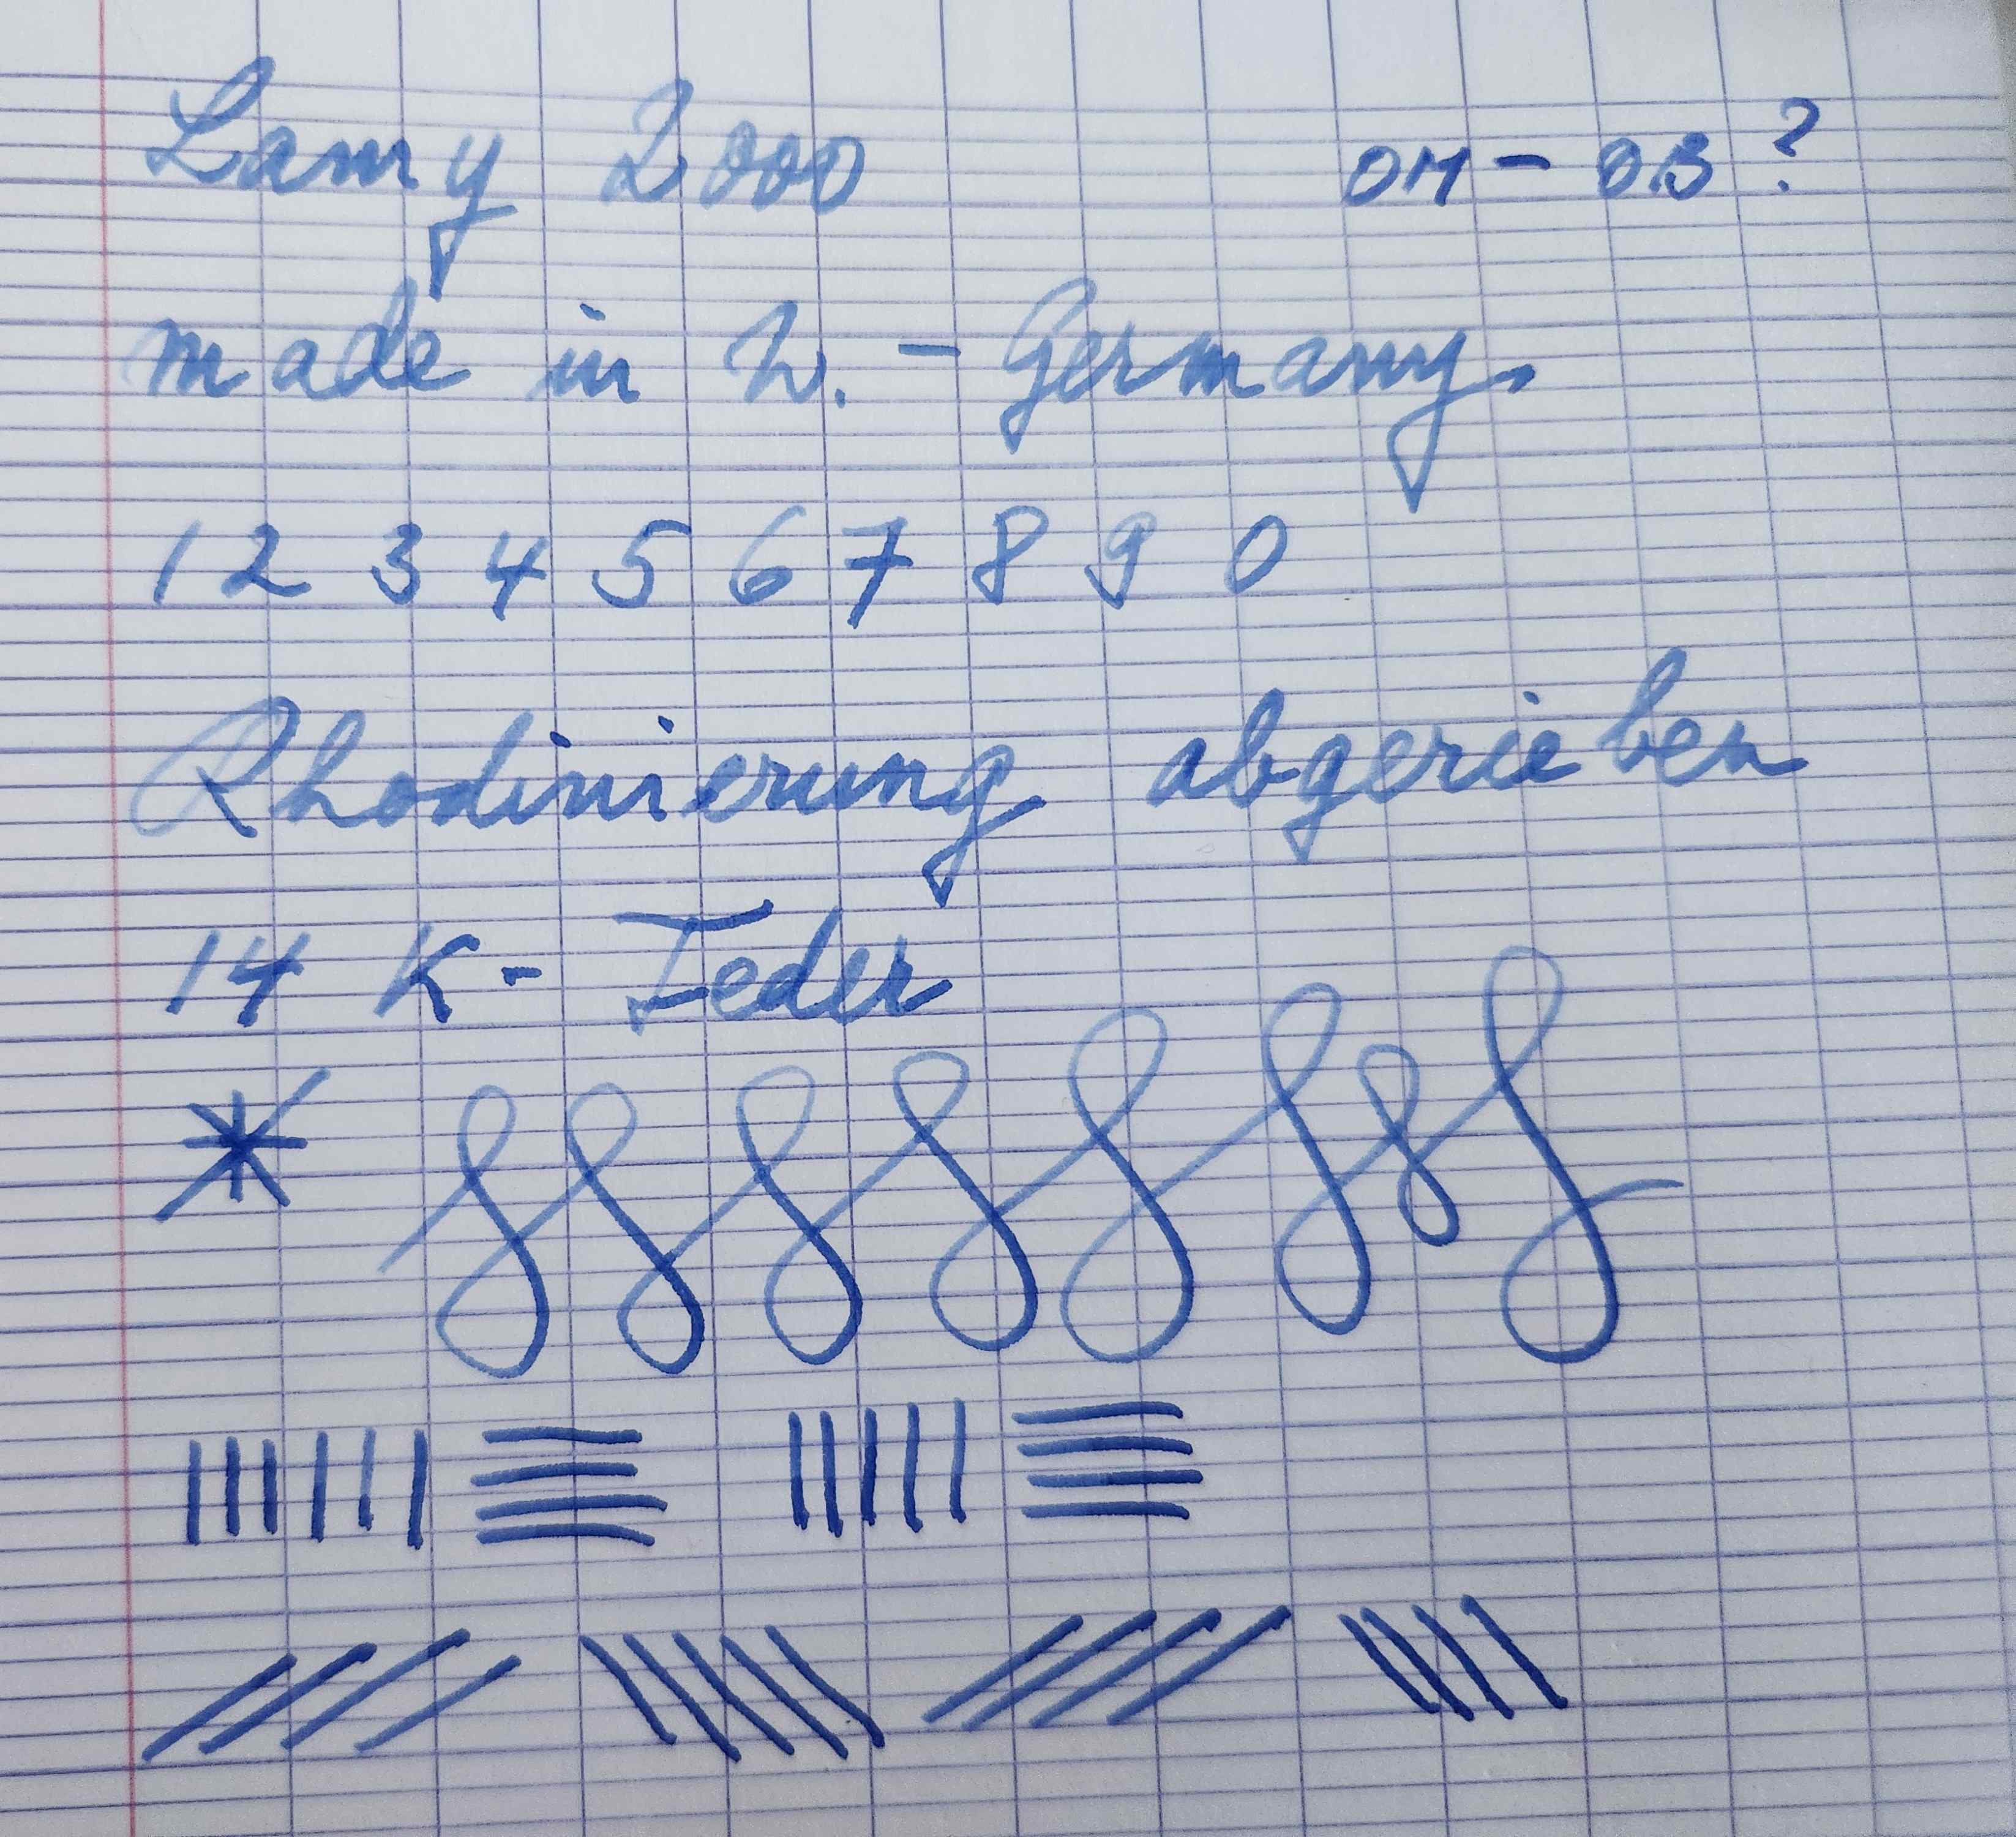 Lamy 2000 OM - OB ?
made in W. - Germany.
1 2 3 4 5 6 7 8 9 0
Rhodinierung abgerieben
14 K - Feder